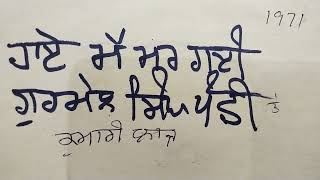 1971
ਹਾਏ ਮੈ ਮਰ ਗਈ
ਗੁਰਮੇਲ ਸਿੰਘ ਪੰਡੀ
ਕੁਮਾਰੀ